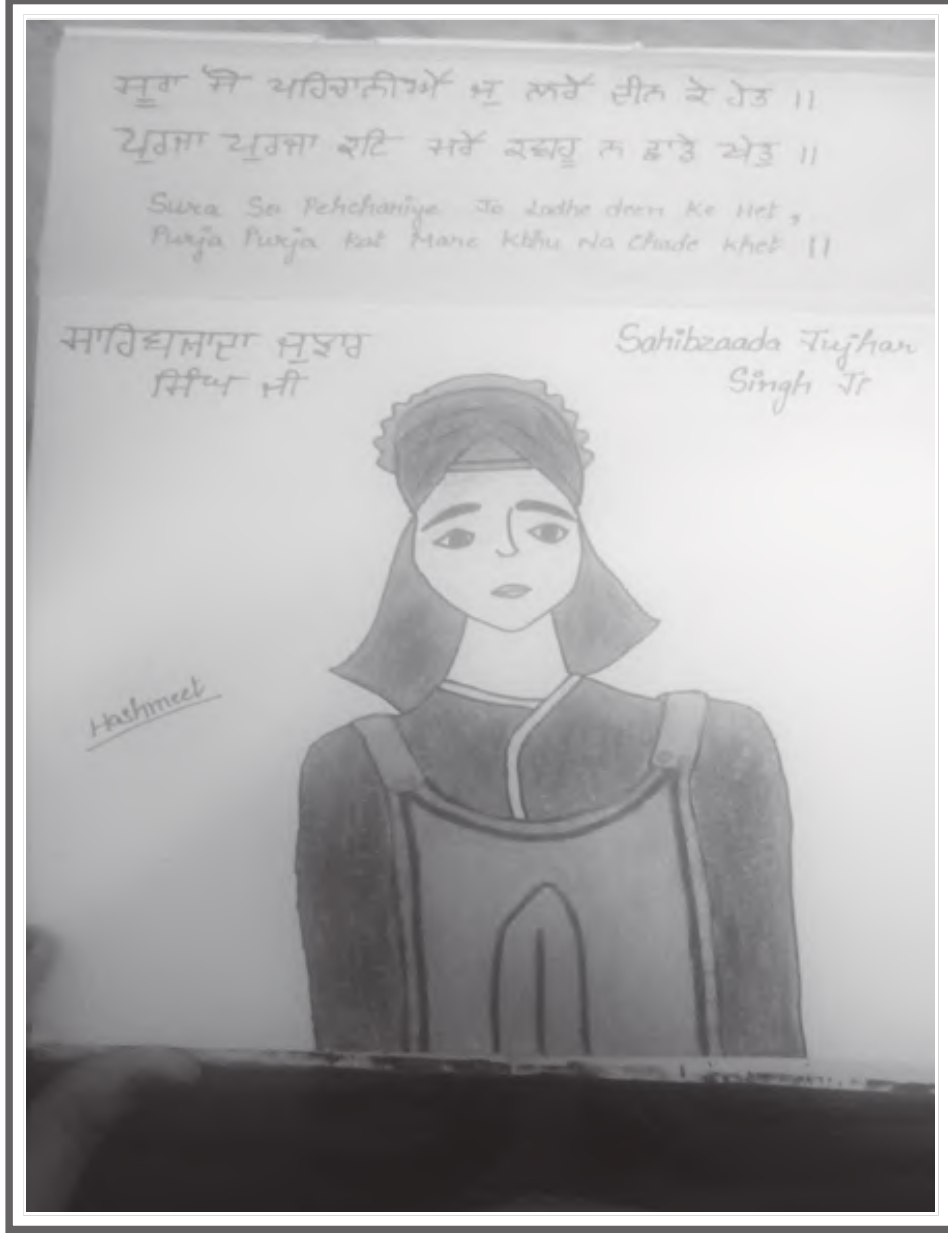 ਸੂਰਾ ਸੋ ਪਹਿਚਾਨੀਐ ਜੁ ਲਰੈ ਦੀਨ ਕੇ ਹੇਤ ॥
ਪੁਰਜਾ ਪੁਰਜਾ ਕਟਿ ਮਰੈ ਕਬਹੂ ਨ ਛਾਡੇ ਖੇਤੁ ॥
Sura So Pehchaniye Jo Ladhe deen Ke Het,
Purja Purja Kat Mare Kbhu Na Chade Khet ॥
ਸਾਹਿਬਜਾਦਾ ਜੁਝਾਰ
ਸਿੰਘ ਜੀ
Sahibzaada Jujhar
Singh Ji
Hashmeet